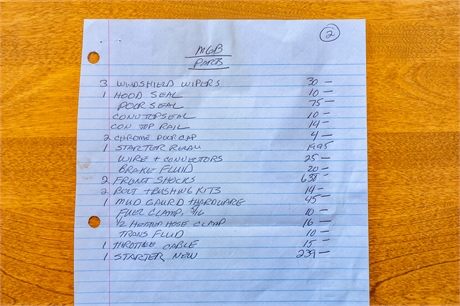 2
MGB
PARTS
3 WINDSHIELD WIPERS 30 —
1 HOOD SEAL 10 —
DOOR SEAL 75 —
CONV TOP SEAL 10 —
CON TOP RAIL 14 —
2 CHROME DOOR CAP 4 —
1 STARTER RELAY 19.95
WIRE + CONNECTORS 25 —
BRAKE FLUID 20 —
2 FRONT SHOCKS 638 —
2 BOLT + BUSHING KITS 14 —
1 MUD GAURD + HARDWARE 45 —
FUEL CLAMP 5/16 10 —
1/2 HEATER HOSE CLAMP 16 —
TRANS FLUID 10 —
1 THROTTLE CABLE 15 —
1 STARTER NEW 239 —